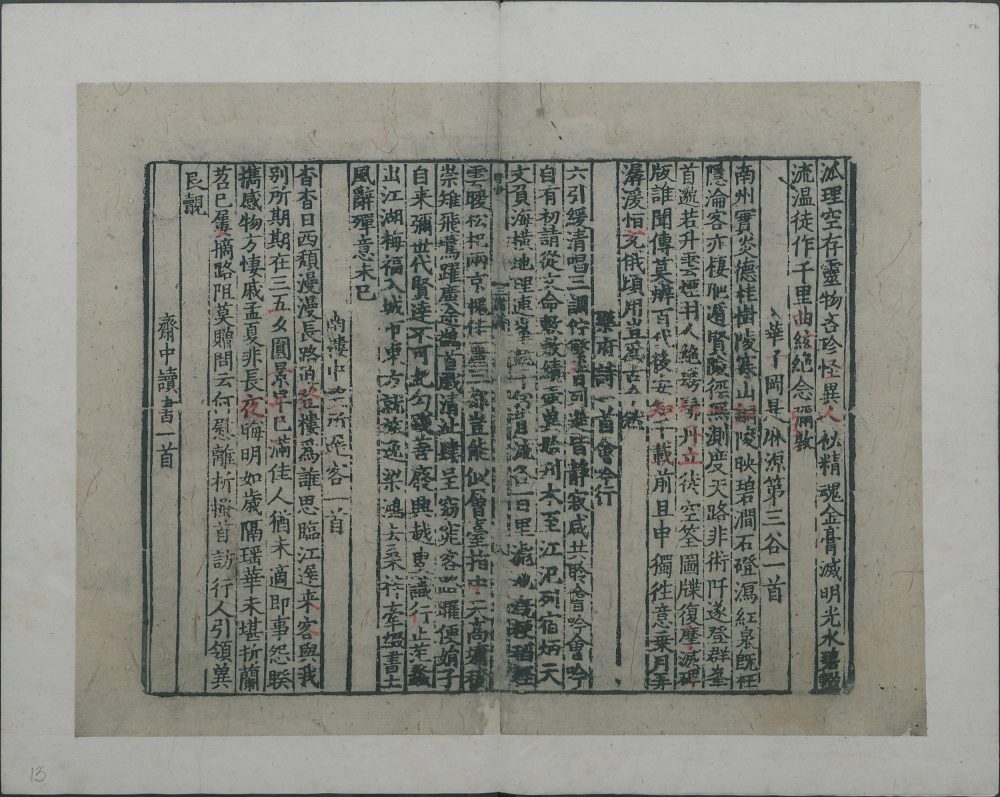 沠理空存靈物吝珍怪異人秘精魂金膏滅明光水碧輟
流温徒作千里曲絃絶念彌敦
華子岡是麻源第三谷一首
南州實炎德桂樹陵寒山銅陵映碧澗石磴瀉紅泉既枉
隱淪客亦棲肥遁賢險徑無測度天路非術阡遂登群峯
首邈若升雲煙羽人絶髣髴丹丘徒空筌圖牒復摩滅碑
版誰聞傳莫辯百代後安知千載前且申獨往意乘月弄
潺湲恒充俄頃用豈爲古今然
樂府詩一首會吟行
六引緩清唱三調佇繁音列筵皆靜寂咸共聆會吟會吟
自有初請從文命敷敷績壺冀始刊木至江汜列宿炳天
文負海橫地理連峯競千仞背流各百里滮池溉粳稻輕
雲曖松杞兩京愧佳麗三都豈能似曾臺指中天高墉積
崇雉飛鷰躍廣途鷁首戲清沚肆呈窈窕客路曜便娟子
自來彌世代賢達不可紀勾踐善廢興越叟識行止范蠡
出江湖梅福入城市東方就旅逸梁鴻去桑梓牽綴書土
風辭殫意未已
南樓中望所遲客一首
杳杳日西頹漫漫長路迫登樓爲誰思臨江遲來客與我
別所期期在三五夕圓景早已滿佳人猶未適即事怨睽
攜感物方悽戚孟夏非長夜晦明如歲隔瑶華未堪折蘭
苕已屢摘路阻莫贈問云何慰離析搔首訪行人引領冀
良覿
齋中讀書一首
13